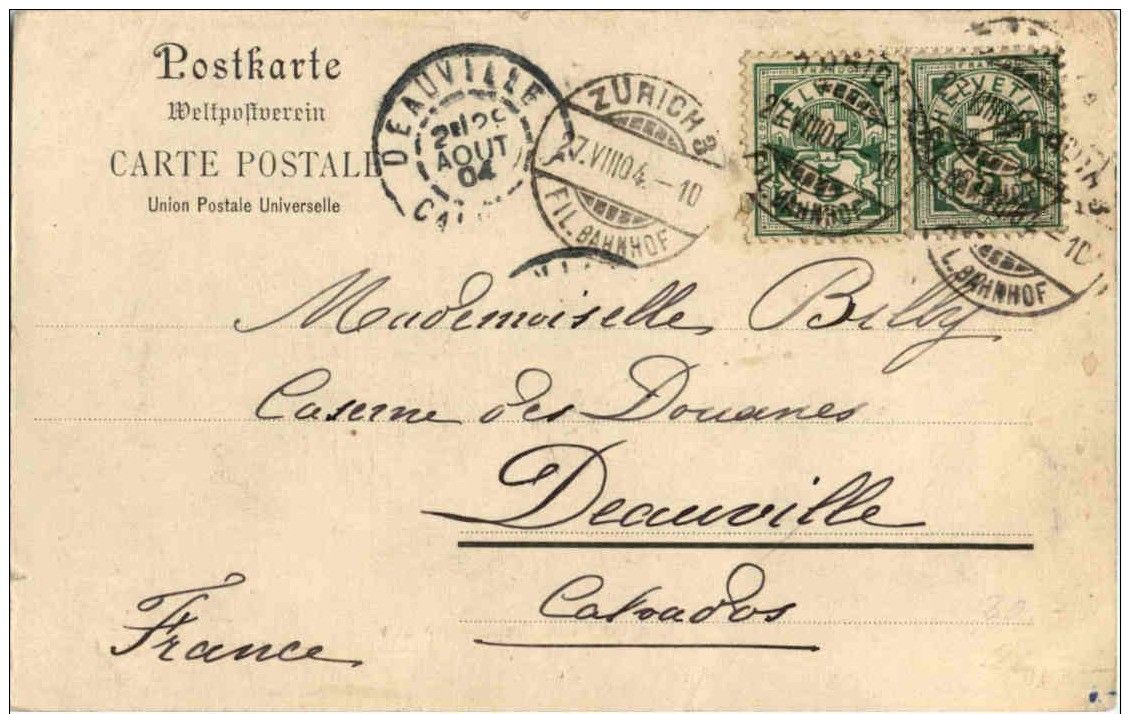 Postkarte
Weltpostverein
CARTE POSTALE
Union Postale Universelle
DEAUVILLE
AOUT
04
ZÜRICH 3
27.VIII 04.-10
FIL. BAHNHOF
HELVETIA
FIL. BAHNHOF
-10
L. BAHNHOF
Mademoiselle Billy
Caserne des Douanes
Deauville
Calvados
France